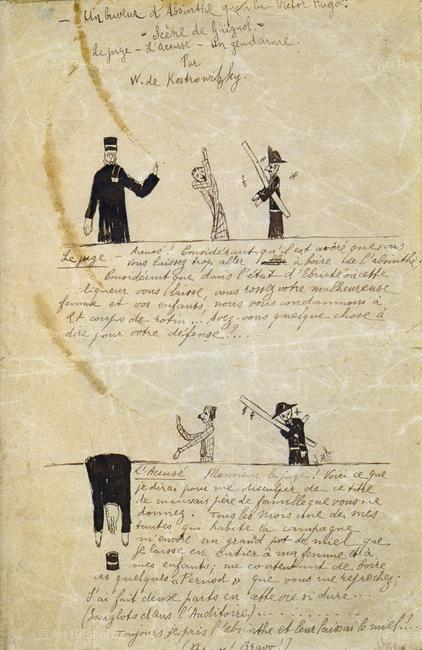 Un buveur d'Absinthe qui a lu Victor Hugo.
- Scène de Guignol. -
Le juge - L'Accusé - Un gendarme.
Par
W. de Kostrowitzky.
Le juge - Accusé! Considérant qu'il est avéré que vous
vous laissez trop aller à boire de l'absinthe.
Considérant que dans l'état d'Ebriété où cette
liqueur vous laisse, vous rossez votre malheureuse
femme et vos enfants, nous vous condamnons à
coups de rotin... Avez-vous quelque chose à
dire pour votre défense?...
L'Accusé Monsieur le juge! Voici ce que
je dirai pour me disculper de ce titre
de mauvais père de famille que vous me
donnez. Tous les mois une de mes
tantes qui habite la campagne
m'envoie un grand pot de miel que
je laisse en entier à ma femme et à
mes enfants; me contentant de boire
les quelques "Pernod" que vous me reprochez;
J'ai fait deux parts en cette vie si dure...
(Sanglots dans l'Auditoire)............
Toujours je pris l'absinthe et leur laissai le miel!...
(Bravo! Bravo!)